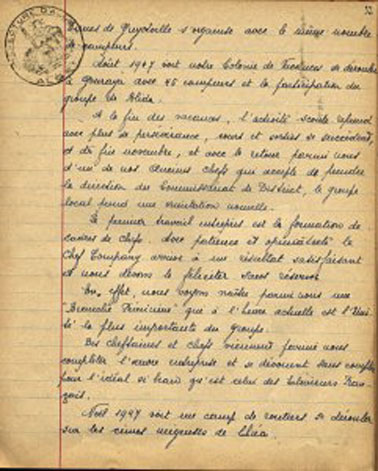 32
de Guyotville s'organise avec le même nombre
campeurs.
Août 1947 voit notre Colonie de Vacances se dérouler
à Gouraya avec 45 campeurs et la participation du
groupe de Blida.
A la fin des vacances, l'activité scoute reprend
avec plus de persévérance, cours et sorties se succèdent,
et dès fin novembre, et avec le retour parmi nous
d'un de nos anciens chefs qui accepte de prendre
la direction du Commissariat de District, le groupe
local prend une orientation nouvelle.
Le premier travail entrepris est la formation de
cadres de chefs. Avec patience et opiniâtreté le
Chef Company arrive à un résultat satisfaisant
et nous devons le féliciter sans réserve.
En effet, nous voyons naître parmi nous une
"Branche Féminine" qui à l'heure actuelle est l'Uni-
té la plus importante du groupe.
Des cheftaines et chefs viennent parmi nous
compléter l'œuvre entreprise et se dévouent sans compter
pour l'idéal si beau qu'est celui des Eclaireurs Fran-
çais.
Noël 1947 voit une camp de routiers se dérouler
sur les cimes neigeuses de Chréa.